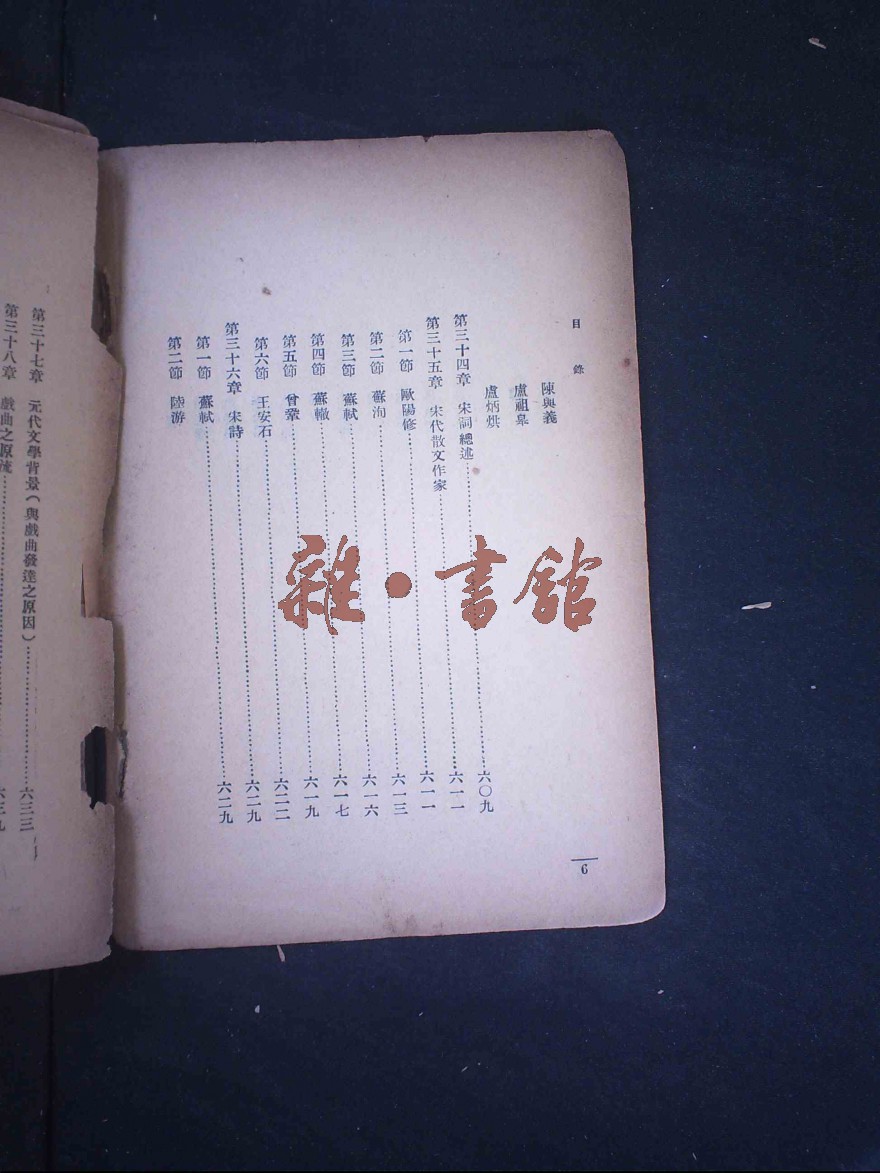 目錄
陳與義
盧祖皐
盧炳烘
第三十四章 宋詞總述……六〇九
第三十五章 宋代散文作家……六一一
第一節 歐陽修……六一一
第二節 蘇洵……六一三
第三節 蘇軾……六一六
第四節 蘇轍……六一七
第五節 曾鞏……六一九
第六節 王安石……六二二
第三十六章 宋詩……六二九
第一節 蘇軾……六二九
第二節 陸游
6
第三十七章 元代文學背景（與戲曲發達之原因）……六三三
第三十八章 戲曲之原流……六三九
雜·書館